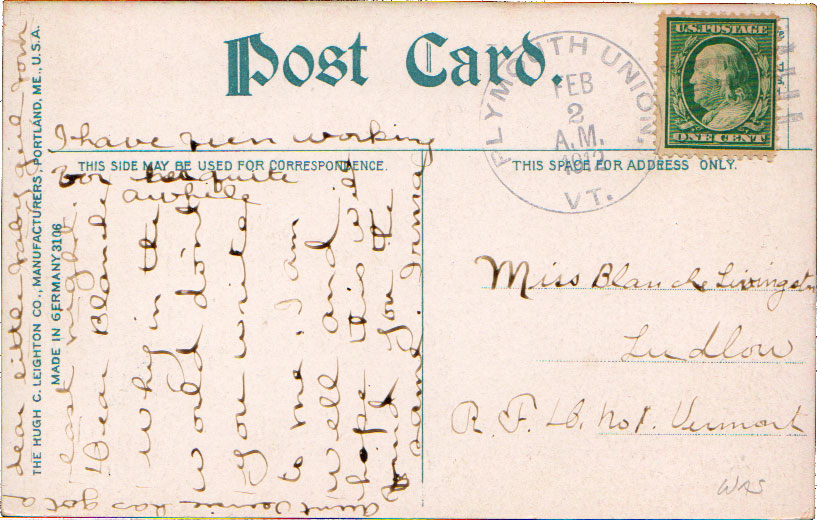 Post Card.
THIS SIDE MAY BE USED FOR CORRESPONDENCE.
THIS SPACE FOR ADDRESS ONLY.
THE HUGH C. LEIGHTON CO., MANUFACTURERS, PORTLAND, ME., U.S.A.
MADE IN GERMANY 3106
U.S. POSTAGE
ONE CENT
PLYMOUTH UNION,
FEB
2
A.M.
1912
VT.
Miss Blanche Livingston
Ludlow
R. F. D. No 1. Vermont
Dear Blanche
why in the
world don't
you write
to me. I am
well and
hope this will
find you the
same.
Aunt has got a
dear little baby girl born
last night.
I have been working
for quite
awhile
WRS